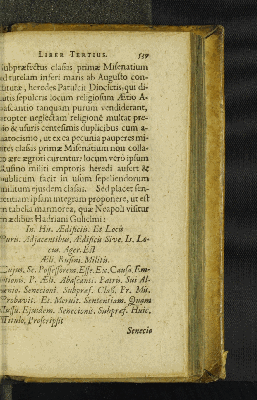 LIBER TERTIUS. 539
subpræfectus classis primæ Misenatium
ad tutelam inferi maris ab Augusto con-
stitutæ, heredes Patulcii Diocletis, qui di-
cutis sepulcris locum religiosum Ælio A-
bascanto tanquam purum vendiderant,
propter neglectam religionē multat pre-
tio & usuris centesimis duplicibus cum a-
natocismo, ut ex ea pecunia pauperes mi-
lites classis primæ Misenatium non colla-
to ære ægrori curentur: locum vero ipsum
Rufino militi emptoris heredi aufert &
publicum facit in usum sepeliendorum
militum ejusdem classis. Sed placet sen-
tentiam ipsam integram proponere, ut est
in tabella marmorea, quæ Neapoli visitur
in ædibus Hadriani Gulielmi:
In. Hu. Ædificiis. Et Locis
Puro. Adjacentibus, Ædificiis Sive. Is. Lo-
cus. Ager. Est
Æli. Rufini. Militis.
Cujus, Se. Possessorem. Esse. Ex. Causa. Em-
tionis. P. Æli. Abascanti. Patris. Sui Al-
Senecioni. Subpræf. Class. Pr. Mis.
Probavit. Et. Meruit. Sententiam. Quam
Jussu. Ejusdem. Senecionis. Subpræf. Huic,
Titulo, Proscripsit
Senecio